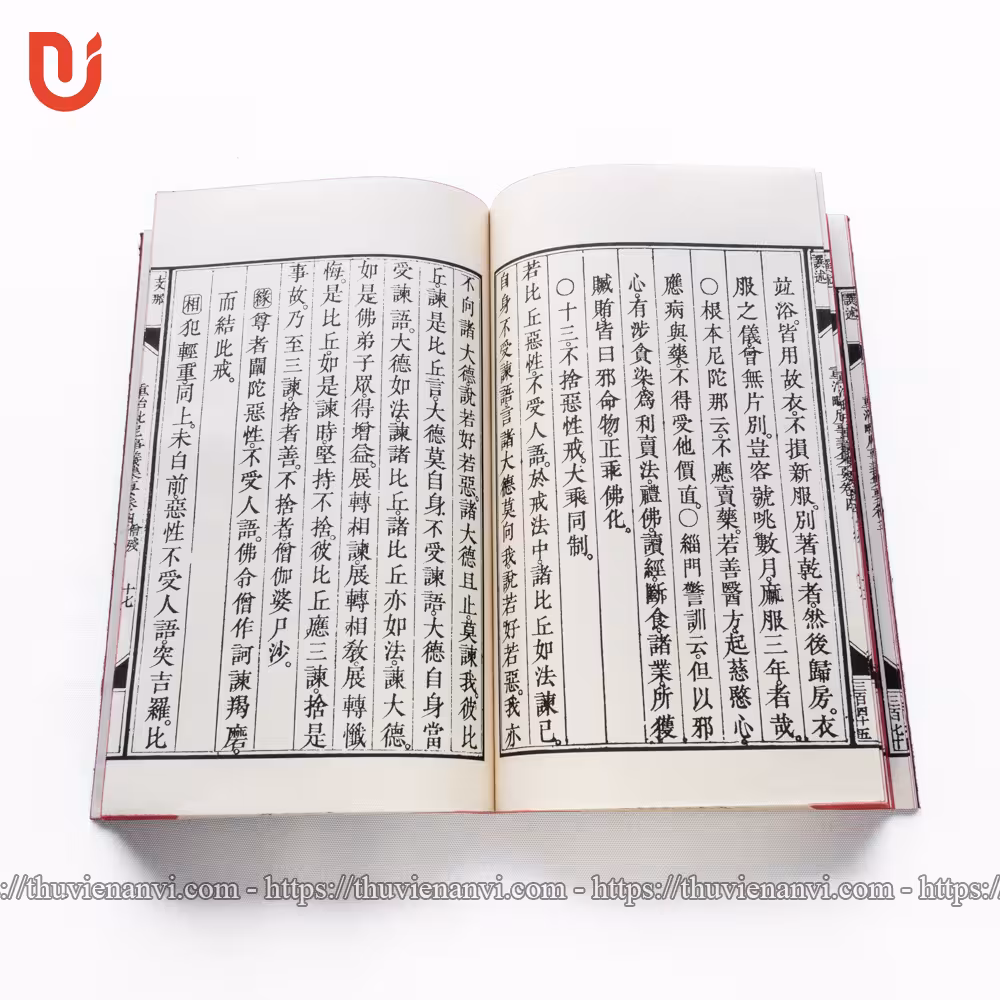 竝浴。皆用故衣。不損新服。別著乾者。然後歸房。衣
服之儀。曾無片別。豈容號咷數月。麻服三年者哉。
○根本尼陀那云。不應賣藥。若善醫方。起慈愍心。
應病與藥。不得受他價直。○緇門警訓云。但以邪
心。有涉貪染。爲利賣法。禮佛。讀經。斷食。諸業所獲
贓賄。皆曰邪命物。正乖佛化。
○十三。不捨惡性戒。大乘同制。
若比丘惡性。不受人語。於戒法中。諸比丘如法諫已。
自身不受諫語。言諸大德。莫向我說若好若惡。我亦
不向諸大德說若好若惡。諸大德且止。莫諫我。彼比
丘。諫是比丘言。大德莫自身不受諫語。大德自身當
受諫語。大德如法。諫諸比丘。諸比丘亦如法。諫大德。
如是佛弟子眾。得增益。展轉相諫。展轉相教。展轉懺
悔。是比丘。如是諫時堅持不捨。彼比丘應三諫。捨是
事故。乃至三諫。捨者善。不捨者。僧伽婆尸沙。
緣 尊者闡陀惡性。不受人語。佛令僧作訶諫羯磨。
而結此戒。
相 犯輕重。同上。未白前。惡性不受人語。突吉羅。比
支那
十七
三百四十五
三百七十
https://thuvienanvi.com - https://thuvienanvi.com - https://thuvienanvi.com